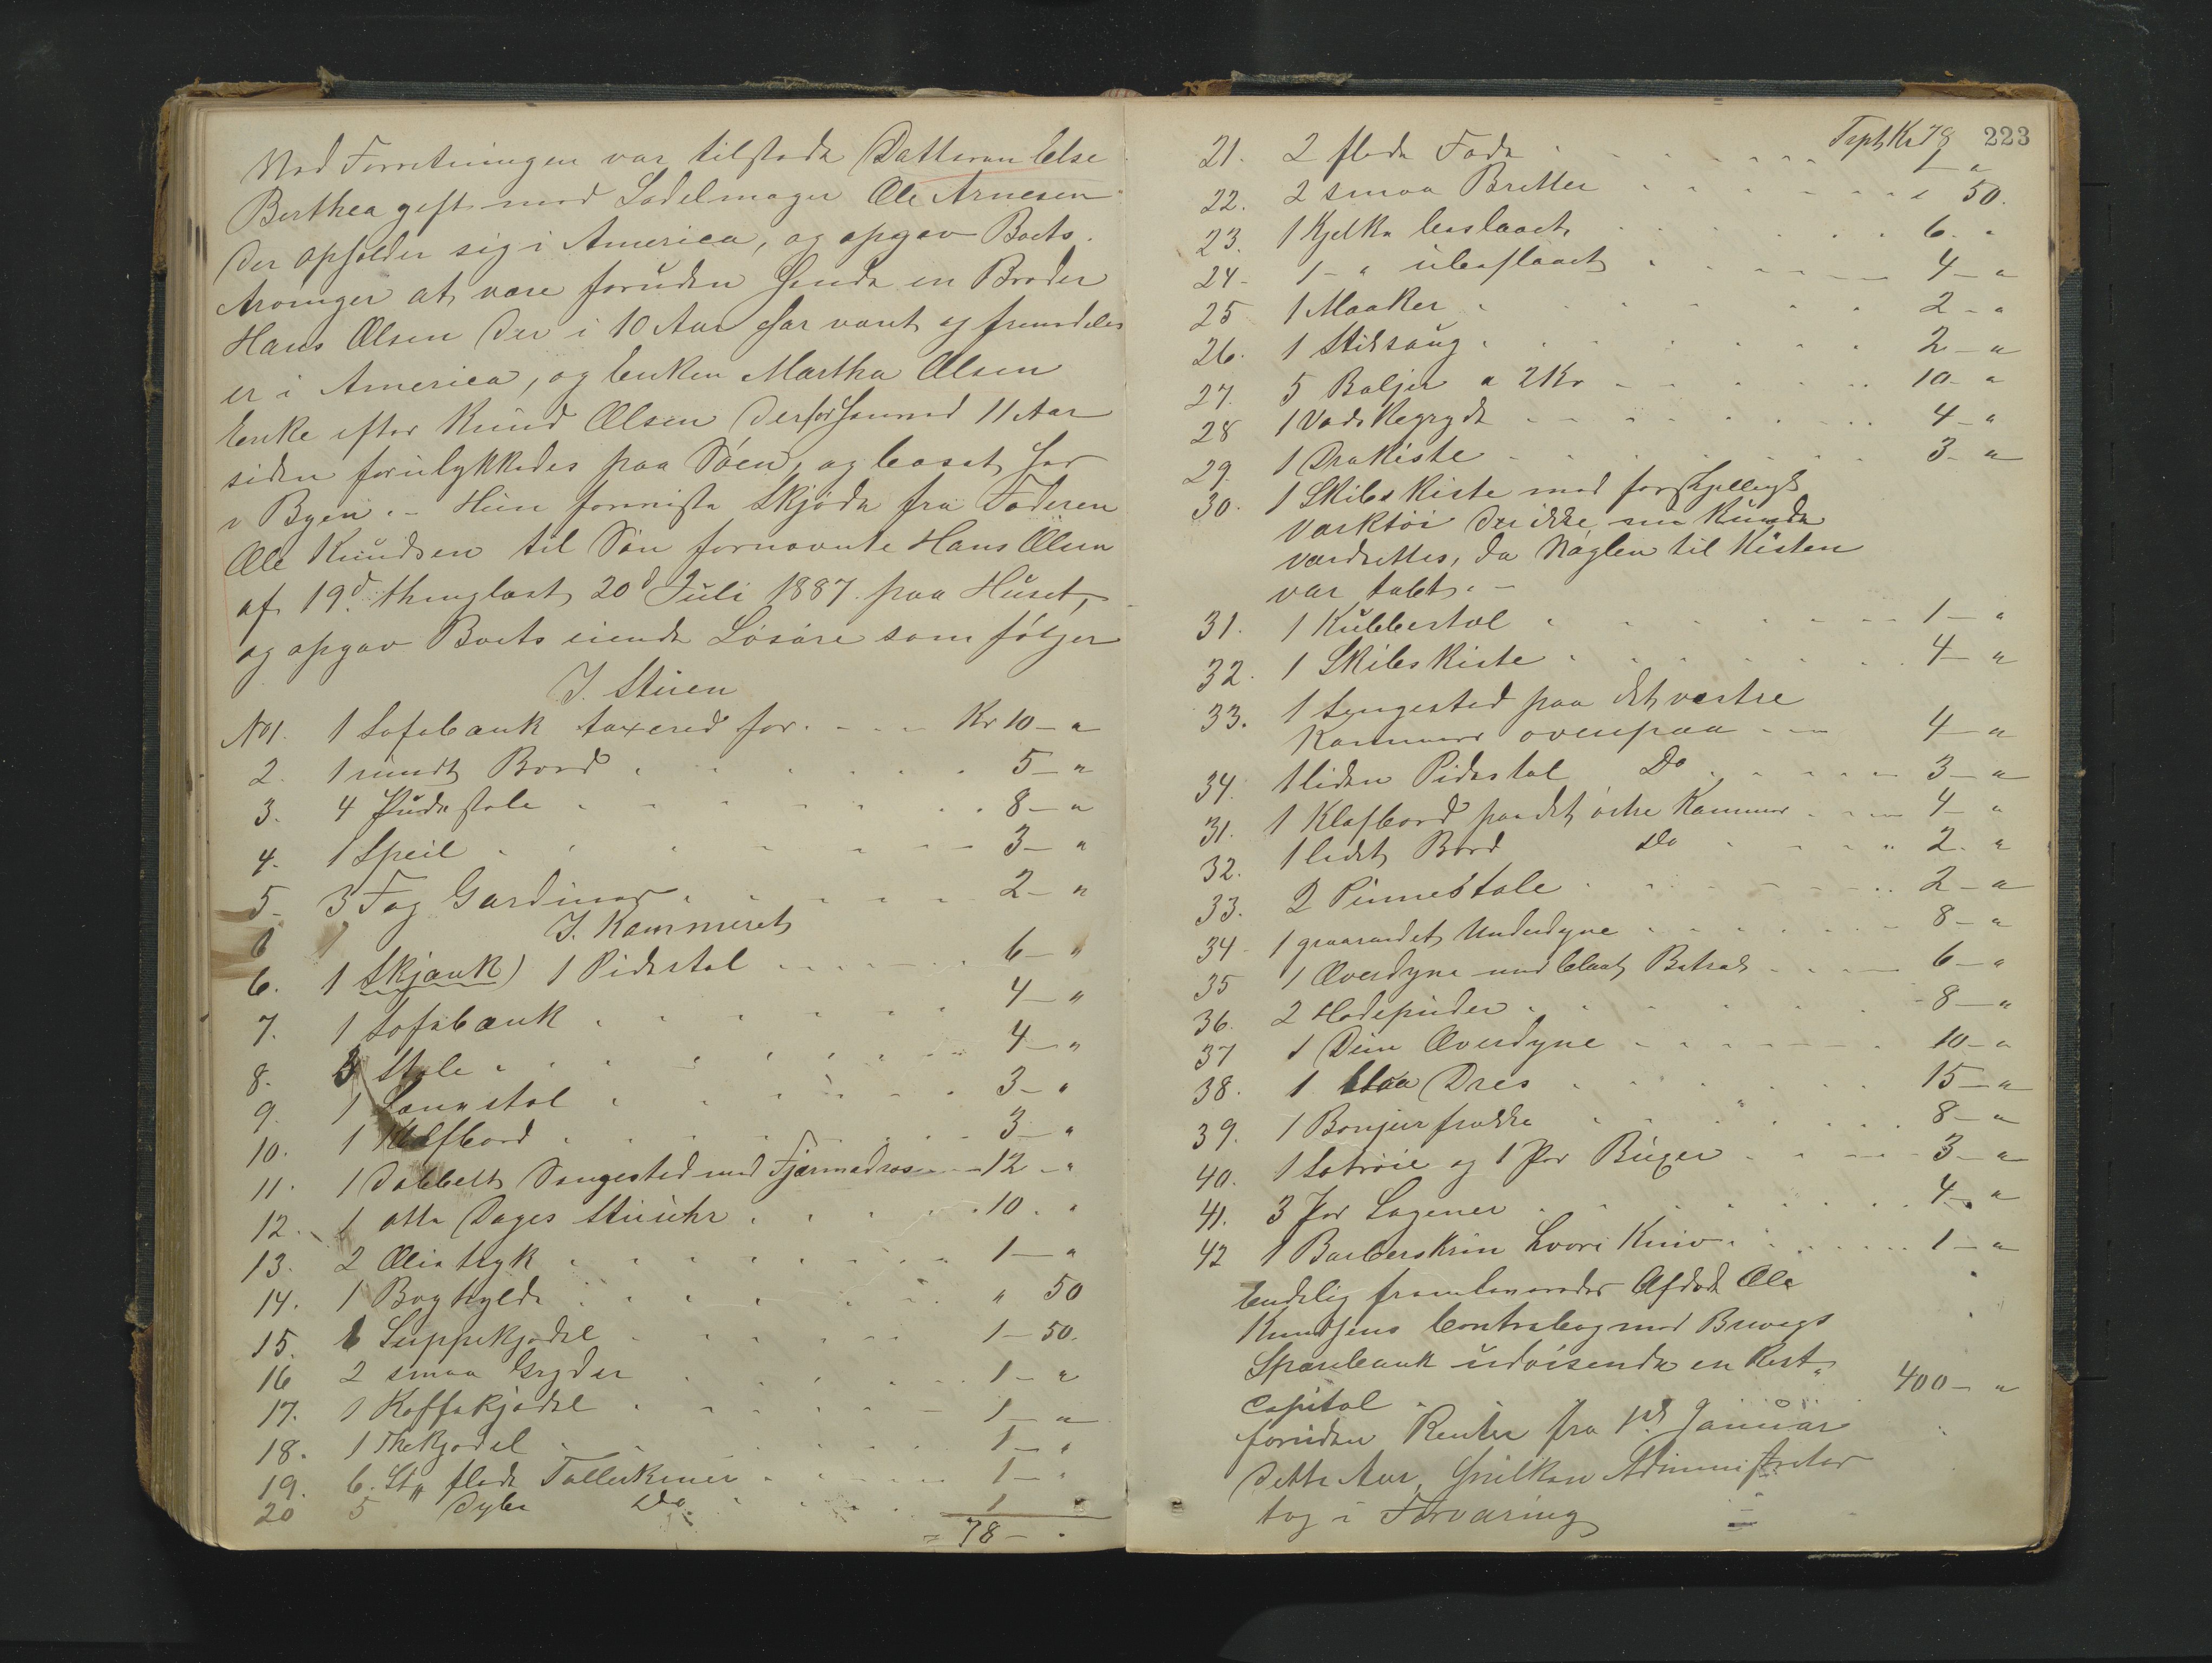 Ved Forretningen var tilstede Datteren Else
Berthea gift med Sadelmager Ole Arnesen
der opholder sig i America, og opgav Boets
Arvinger at være foruden hende en Broder
Hans Olsen der i 10 Aar har været og fremdeles
er i America, og Enken Martha Olsen
Enke efter Knud Olsen der for henved 11 Aar
siden forulykkedes paa Søen, og bosat her
i Byen. - Hun foreviste Skjøde fra Faderen
Ole Knudsen til Søn fornævnte Hans Olsen
af 19d thinglæst 20d Juli 1887 paa Huset,
og opgav Boets eiende Løsøre som følger
I. Stuen
No 1. 1 Sofabænk taxered for. - - - Kr 10 - "
2. 1 rundt Bord . . . 5 - "
3. 4 Pudestole . . . 8 - "
4. 1 Speil . . . 3 - "
5 - 3 Fag Gardiner . . . 2 - "
6 I. Kammeret
6. 1 Skjænk) 1 Pidestal . . . 6 - "
7. 1 Sofabænk . . . 4 - "
8. 3 Stole . . . 4 - "
9. 1 Lænestol . . . 3 - "
10. 1 Klafbord . . . 3 - "
11. 1 Dobbelt Sengested med Fjærmadras - - 12 - "
12. 1 otte Dages Stueuhr . . . 10 . "
13. 2 Olietryk . . . 1 - "
14. 1 Boghylde . . . " 50
15. 1 Suppekjedel . . . 1 - 50.
16 2 smaa Gryder . . . 1 - "
17. 1 Kaffekjedel . . . 1 - "
18. 1 Thekjedel . . . 1 - "
19. 6. St" flade Tallerkener . . . 1 - "
20 5 dybe Do. . . . 1 "
= 78 - .
Tspt Kr 78 223
21. 2 flade Fade . . . 1 - "
22. 2 smaa Bretter . . . " 50.
23. 1 Kjelke beslaaet . . . 6. "
24 - 1 - " ubeslaaet . . . 4 - "
25 1 Maaker . . . 2 - "
26. 1 Stiksaug . . . 2 - "
27. 5 Baljer a 2 Kr . . . 10 - "
28 1 Vadskegryde . . . 4 - "
29. 1 Drakiste . . . 3 - "
30. 1 Skibskiste med forskjelligt
Værktøi der ikke kunde
værdsettes, da Nøglen til Kisten
var tabt. -
31. 1 Kubbestol . . . 1 - "
32. 1 Skibskiste . . . 4 - "
33. 1 Sengested paa det vestre
Kammer ovenpaa . - - 4 - "
34. 1 liden Pidestal Do . . . 3 - "
31. 1 Klafbord paa det østre Kammer . . . 4 - "
32. 1 lidet Bord Do . . . 2. "
33. 2 Pinnestole . . . 2 - "
34 - 1 graarandet Underdyne . . . 8 - "
35 1 Overdyne med blaat Betræk . . . 6 - "
36. 2 Hodepuder . . . 8 - "
37 1 Dun Overdyne . . . 10 - "
38. 1 blaa Dres . . . 15 - "
39. 1 Bonjurfrakke . . . 8 - "
40. 1 Lotrøie og 1 Par Buxer . . . 3 - "
41. 3 Par Lagener . . . 4 - "
42 1 Barberskrin hvori Kniv . . . 1 - "
Endelig fremlagdes Afdøde Ole
Knudsens Contrabog med Brevigs
Sparebank udvisende en Rest-
capital . 400 - "
foruden Renter fra 1ste Januar
dette Aar, hvilken Administrator
tog i Forvaring